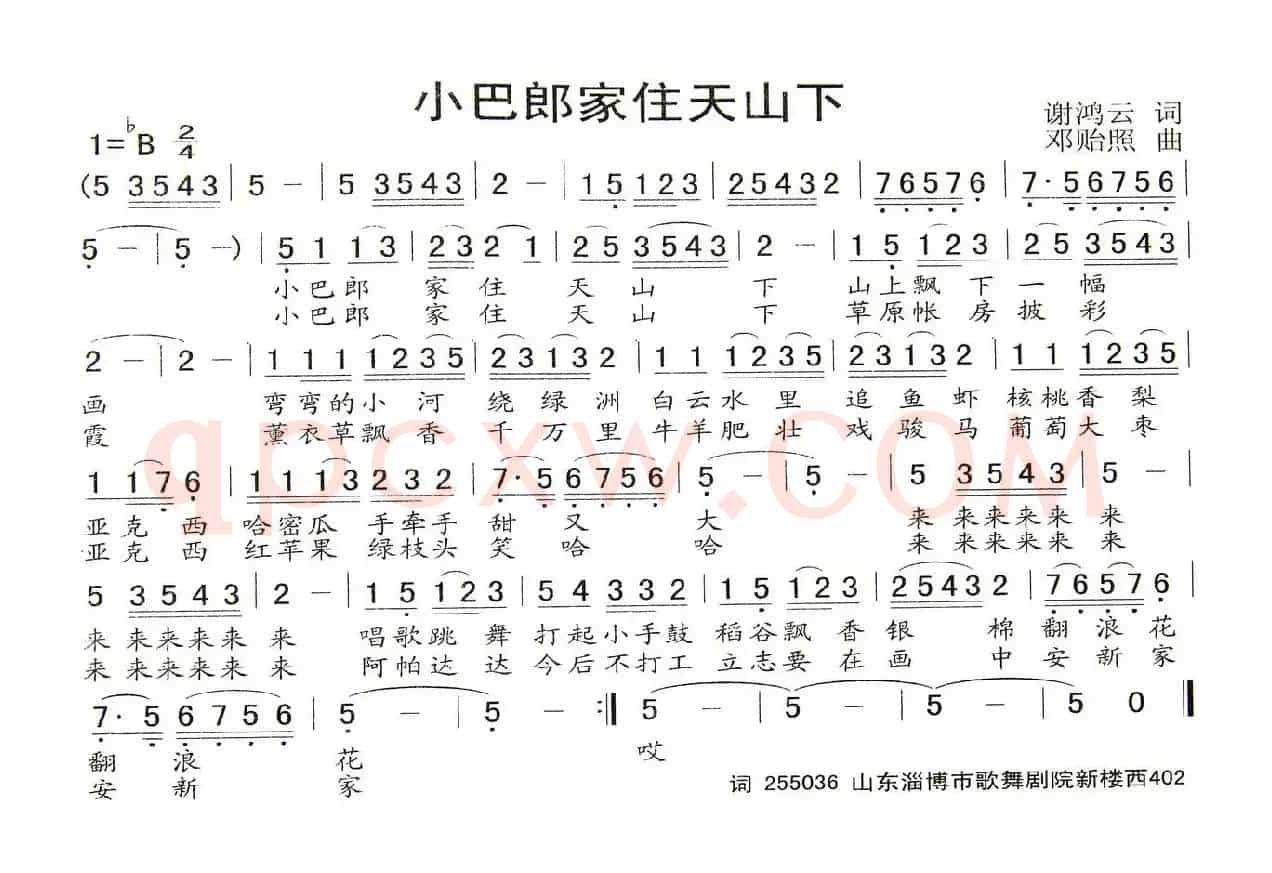 小巴郎家住天山下
1=♭B 2/4
谢鸿云 词
邓贻照 曲
(5 3543 | 5 – | 5 3543 | 2 – | 15 123 | 25432 | 76576 | 7·5 6756 |
5 – | 5 –) | 51 13 | 23 21 | 25 3543 | 2 – | 15 123 | 25 3543 |
小巴郎 家住 天山 下 山上飘下一幅
小巴郎 家住 天山 下 草原帐房披彩
2 – | 2 – | 111 1235 | 23132 | 11 1235 | 23132 | 11 1235 |
画 弯弯的小河 绕绿洲 白云水里 追鱼虾 核桃香梨
霞 薰衣草飘香 千万里 牛羊肥壮 戏骏马 葡萄大枣
1176 | 1113 232 | 7·5 6756 | 5 – | 5 – | 5 3543 | 5 – |
亚克西 哈密瓜 手牵手 甜又大 来来来来来来
亚克西 红苹果 绿枝头 笑哈哈 来来来来来来
5 3543 | 2 – | 15 123 | 54 332 | 15 123 | 25432 | 76576 |
来来来来来来 唱歌跳舞 打起小手鼓 稻谷飘香银棉翻浪花
来来来来来来 阿帕达达 今后不打工 立志要在画中安新家
7·5 6756 | 5 – | 5 – :‖ 5 – | 5 – | 5 – | 5 0 ‖
翻浪花 哎
安新家
词 255036 山东淄博市歌舞剧院新楼西402
qpcxw.COM